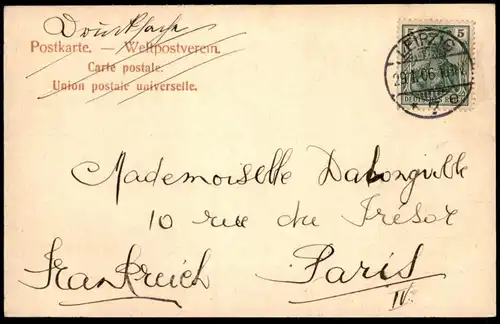 Drucksache
Postkarte. — Weltpostverein.
Carte postale.
Union postale universelle.
5 5
LEIPZIG
Mademoiselle Dalongville
10 rue du Trésor
Frankreich Paris
IV.